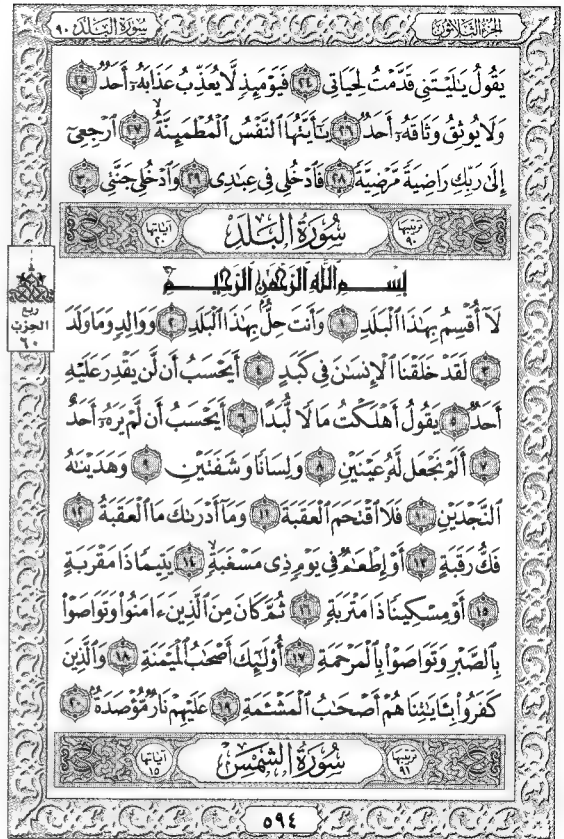 الجزء الثلاثون
سورة البلد ٩٠
يَقُولُ يَٰلَيْتَنِى قَدَّمْتُ لِحَيَاتِى ٢٤ فَيَوْمَئِذٍ لَّا يُعَذِّبُ عَذَابَهُۥٓ أَحَدٌ ٢٥
وَلَا يُوثِقُ وَثَاقَهُۥٓ أَحَدٌ ٢٦ يَٰٓأَيَّتُهَا ٱلنَّفْسُ ٱلْمُطْمَئِنَّةُ ٢٧ ٱرْجِعِىٓ
إِلَىٰ رَبِّكِ رَاضِيَةً مَّرْضِيَّةً ٢٨ فَٱدْخُلِى فِى عِبَٰدِى ٢٩ وَٱدْخُلِى جَنَّتِى ٣٠
ترتيبها ٩٠ سُورَةُ البَلَدِ آياتها ٢٠
بِسْمِ ٱللَّهِ ٱلرَّحْمَٰنِ ٱلرَّحِيمِ
لَآ أُقْسِمُ بِهَٰذَا ٱلْبَلَدِ ١ وَأَنتَ حِلٌّۢ بِهَٰذَا ٱلْبَلَدِ ٢ وَوَالِدٍ وَمَا وَلَدَ
٣ لَقَدْ خَلَقْنَا ٱلْإِنسَٰنَ فِى كَبَدٍ ٤ أَيَحْسَبُ أَن لَّن يَقْدِرَ عَلَيْهِ
أَحَدٌ ٥ يَقُولُ أَهْلَكْتُ مَالًا لُّبَدًا ٦ أَيَحْسَبُ أَن لَّمْ يَرَهُۥٓ أَحَدٌ
٧ أَلَمْ نَجْعَل لَّهُۥ عَيْنَيْنِ ٨ وَلِسَانًا وَشَفَتَيْنِ ٩ وَهَدَيْنَٰهُ
ٱلنَّجْدَيْنِ ١٠ فَلَا ٱقْتَحَمَ ٱلْعَقَبَةَ ١١ وَمَآ أَدْرَىٰكَ مَا ٱلْعَقَبَةُ ١٢
فَكُّ رَقَبَةٍ ١٣ أَوْ إِطْعَٰمٌ فِى يَوْمٍ ذِى مَسْغَبَةٍ ١٤ يَتِيمًا ذَا مَقْرَبَةٍ
١٥ أَوْ مِسْكِينًا ذَا مَتْرَبَةٍ ١٦ ثُمَّ كَانَ مِنَ ٱلَّذِينَ ءَامَنُوا۟ وَتَوَاصَوْا۟
بِٱلصَّبْرِ وَتَوَاصَوْا۟ بِٱلْمَرْحَمَةِ ١٧ أُو۟لَٰٓئِكَ أَصْحَٰبُ ٱلْمَيْمَنَةِ ١٨ وَٱلَّذِينَ
كَفَرُوا۟ بِـَٔايَٰتِنَا هُمْ أَصْحَٰبُ ٱلْمَشْـَٔمَةِ ١٩ عَلَيْهِمْ نَارٌ مُّؤْصَدَةٌۢ ٢٠
ترتيبها ٩١ سُورَةُ الشَّمْسِ آياتها ١٥
ربع
الحزب
٦٠
٥٩٤